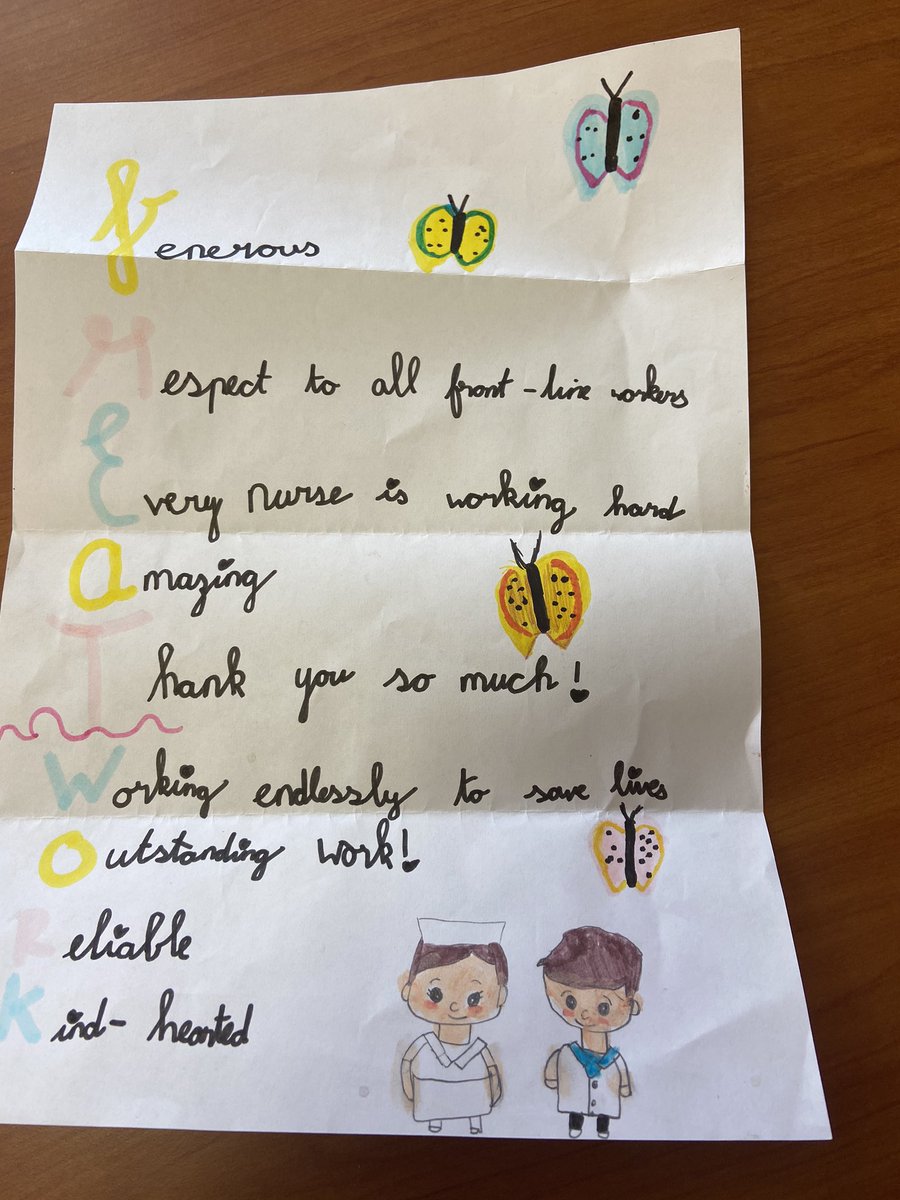 Generous
Respect to all front-line workers
Every nurse is working hard
amazing
Thank you so much!
Working endlessly to save lives
Outstanding work!
Reliable
Kind-hearted